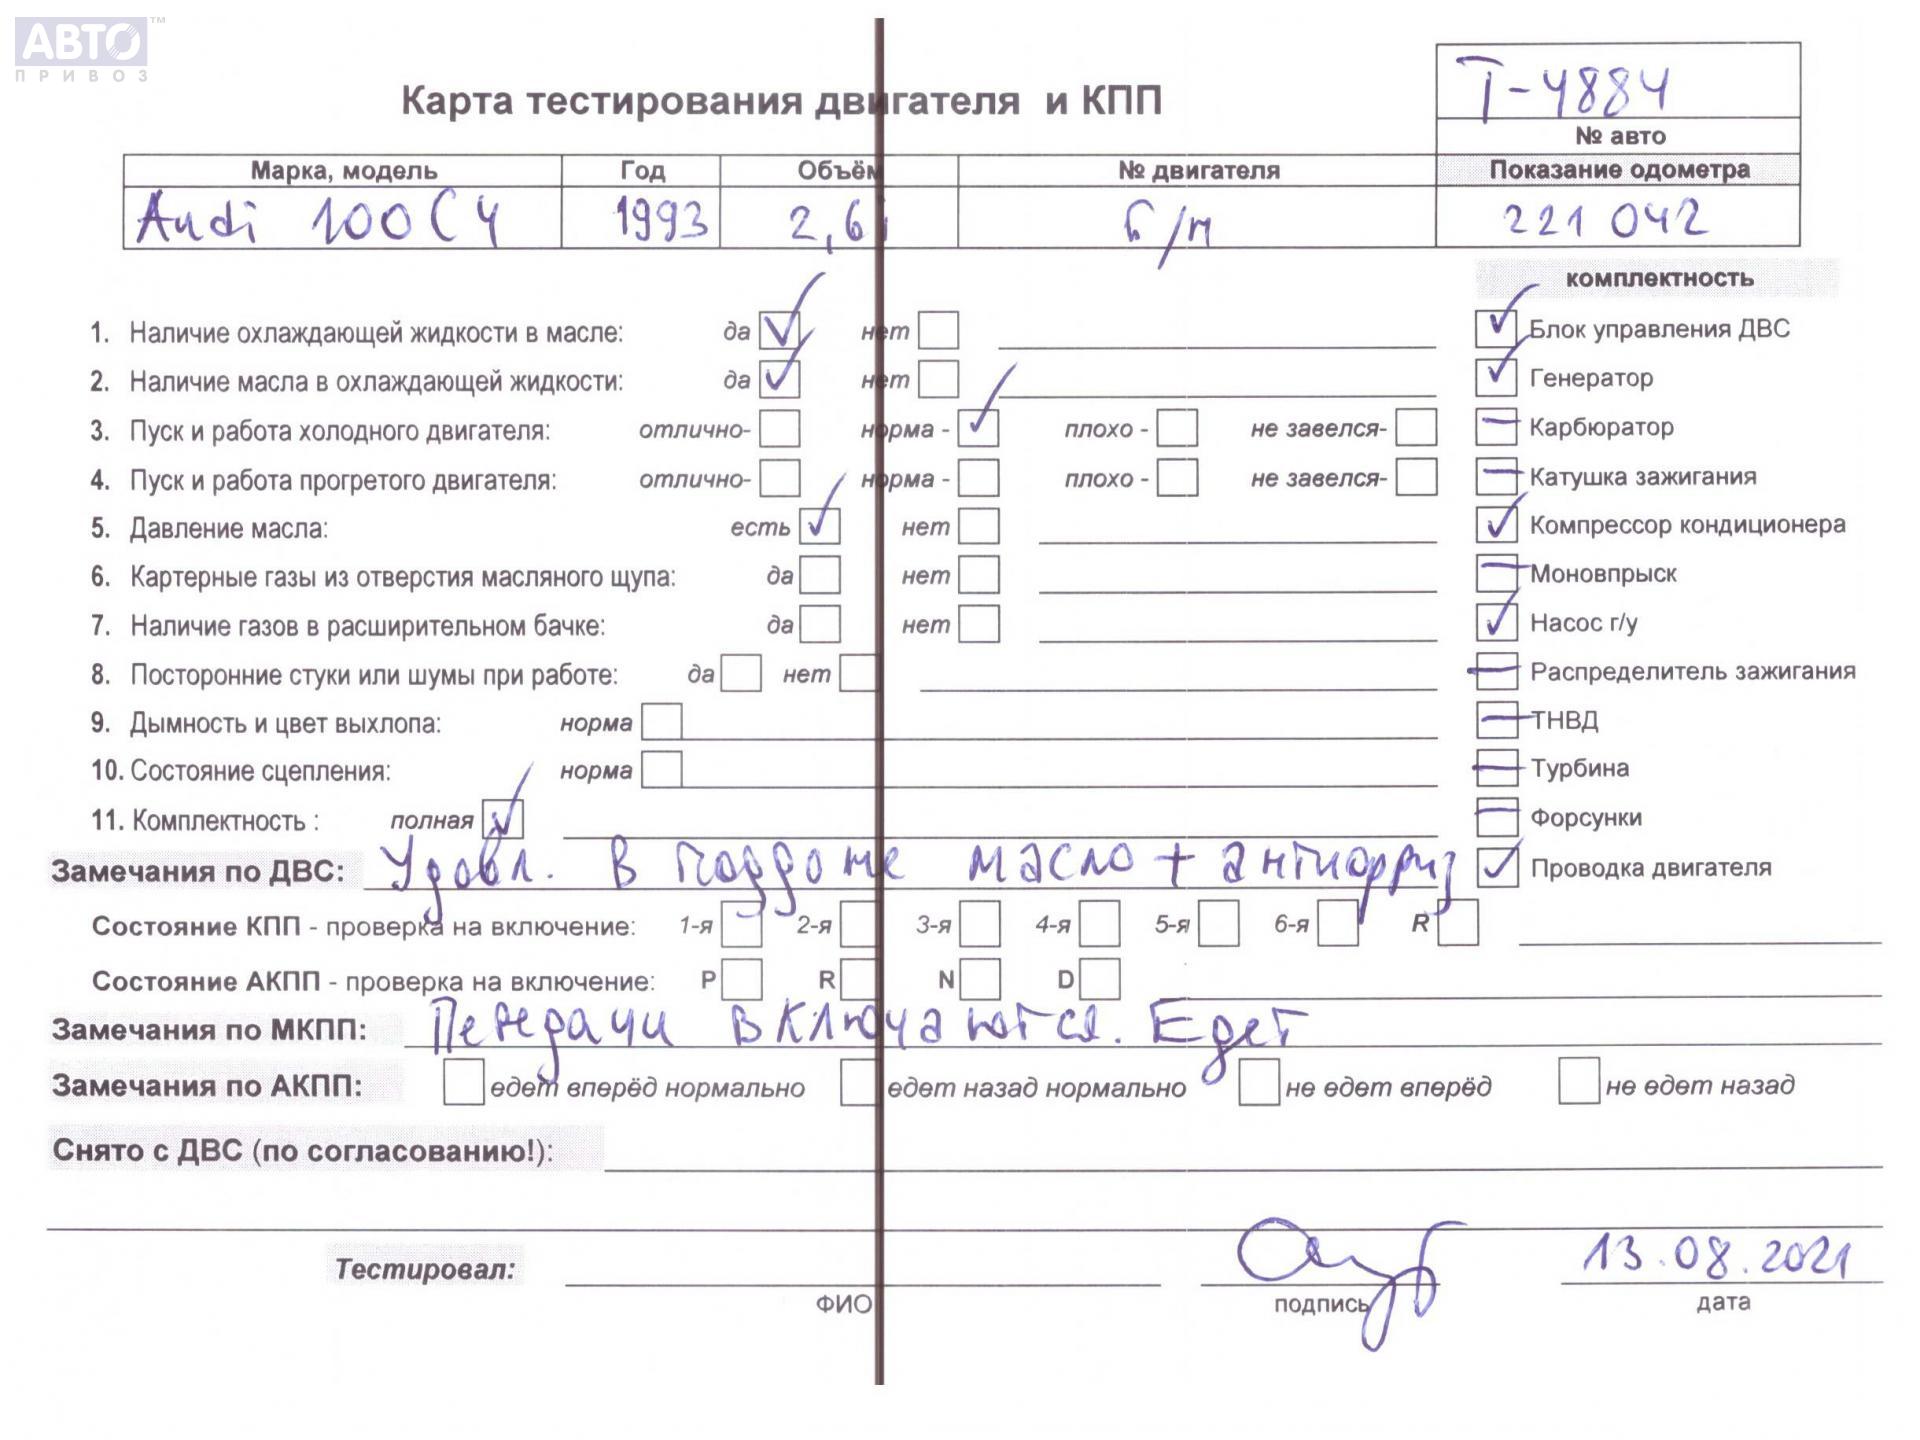 АВТО™
ПРИВОЗ
Т-4884
Карта тестирования двигателя и КПП
№ авто
Марка, модель Год Объём № двигателя Показание одометра
Audi 100 C4 1993 2,6i б/н 221 042
комплектность
1. Наличие охлаждающей жидкости в масле: да нет Блок управления ДВС
2. Наличие масла в охлаждающей жидкости: да нет Генератор
3. Пуск и работа холодного двигателя: отлично- норма - плохо - не завелся- Карбюратор
4. Пуск и работа прогретого двигателя: отлично- норма - плохо - не завелся- Катушка зажигания
5. Давление масла: есть нет Компрессор кондиционера
6. Картерные газы из отверстия масляного щупа: да нет Моновпрыск
7. Наличие газов в расширительном бачке: да нет Насос г/у
8. Посторонние стуки или шумы при работе: да нет Распределитель зажигания
9. Дымность и цвет выхлопа: норма ТНВД
10. Состояние сцепления: норма Турбина
11. Комплектность : полная Форсунки
Замечания по ДВС: Удовл. В поддоне масло + антифриз Проводка двигателя
Состояние КПП - проверка на включение: 1-я 2-я 3-я 4-я 5-я 6-я R
Состояние АКПП - проверка на включение: P R N D
Замечания по МКПП: Передачи включаются. Едет
Замечания по АКПП: едет вперёд нормально едет назад нормально не едет вперёд не едет назад
Снято с ДВС (по согласованию!):
Тестировал: 13.08.2021
ФИО подпись дата